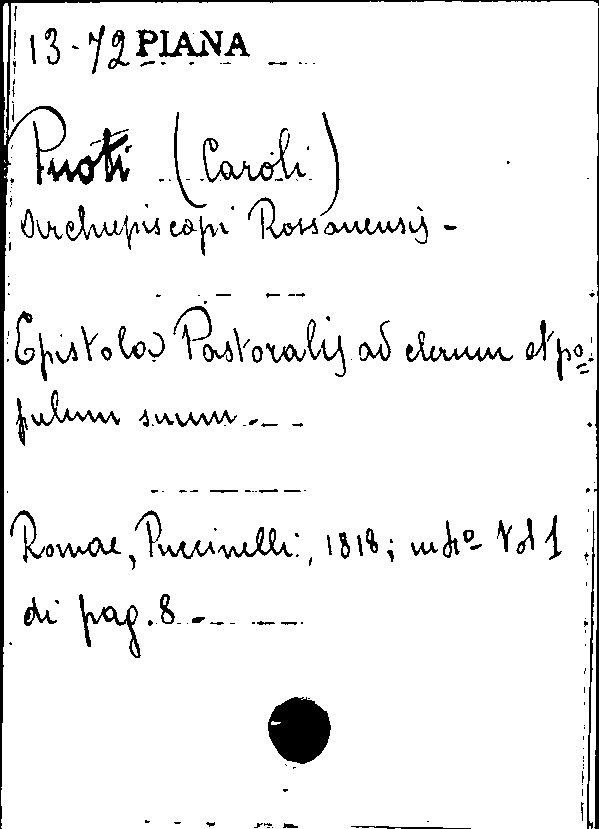 13-72 PIANA
Puoti (Caroli)
Archiepiscopi Rossanensis -
Epistola Pastoralis ad clerum et po=
pulum suum.
Romae, Puccinelli, 1818; in 4º Vol 1
di pag. 8 -